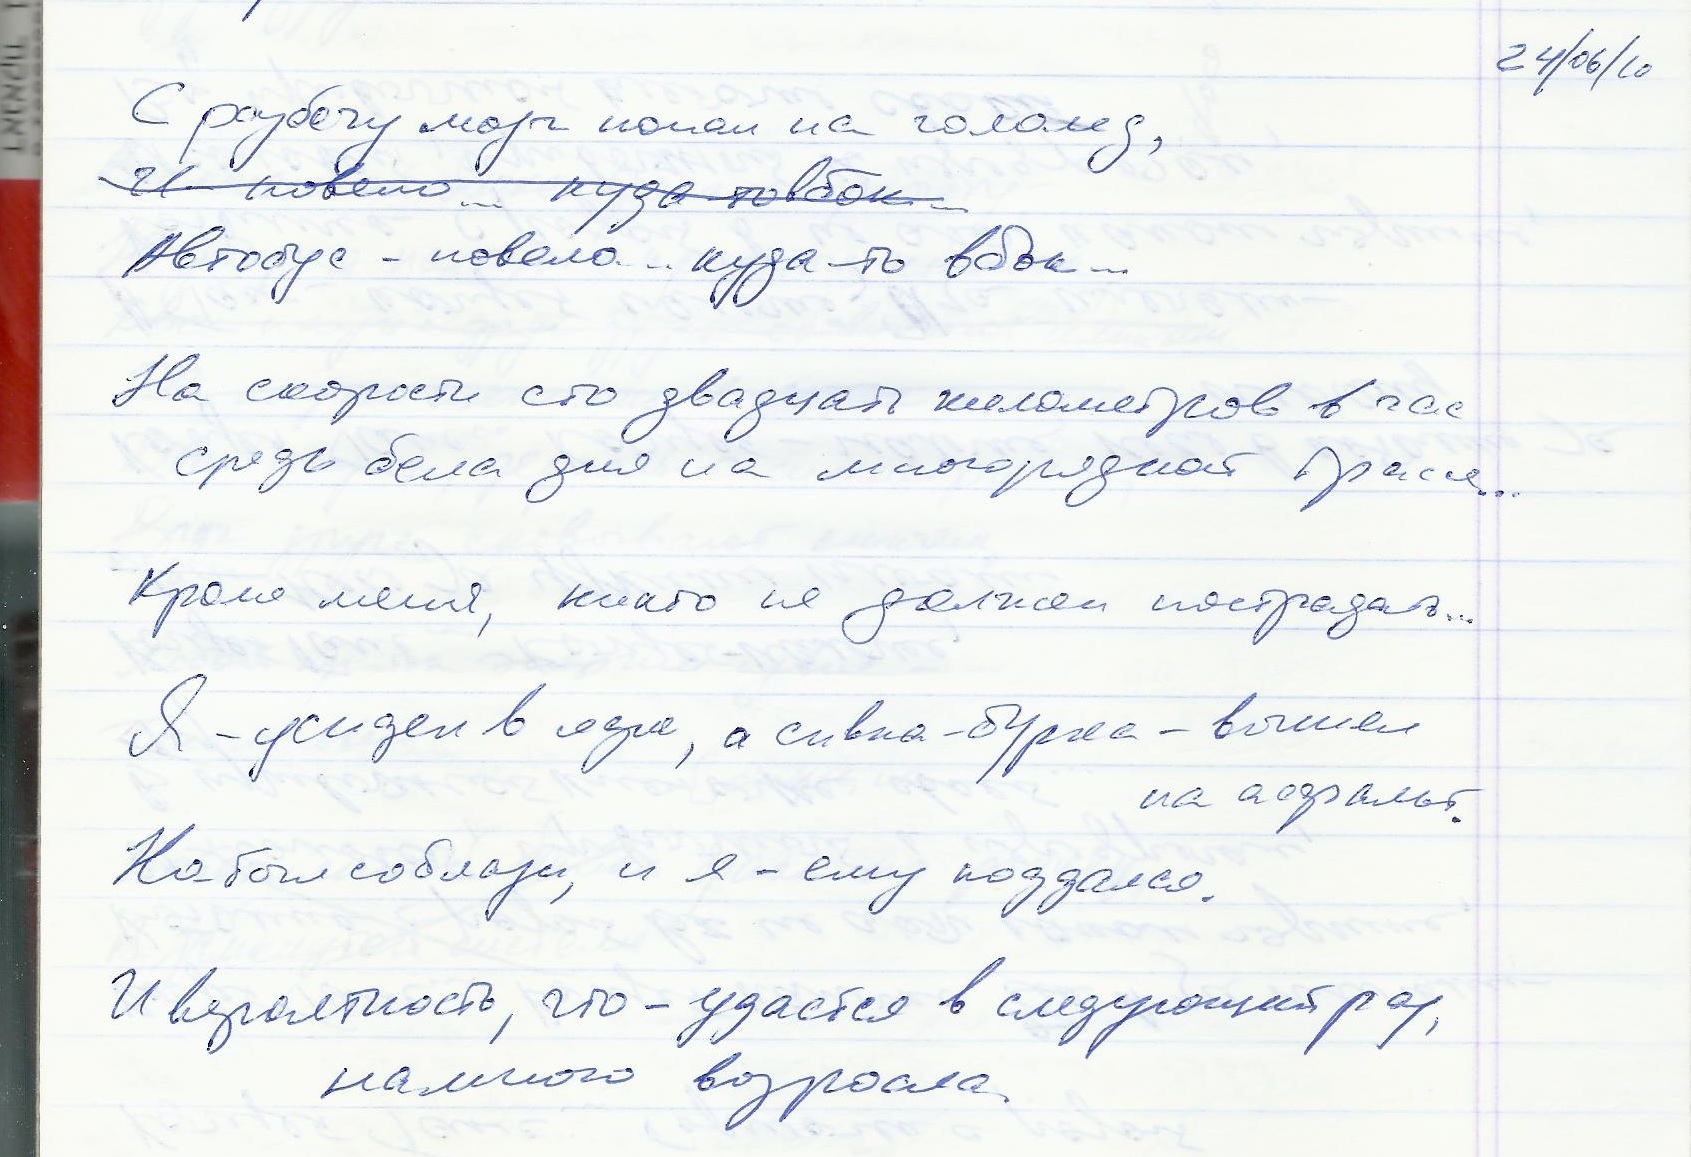 24/06/10
С разбегу мозг попал на гололед,
И повело... куда-то вбок...
Автобус - повело... куда-то вбок...
На скорости сто двадцать километров в час
средь бела дня на многорядной трассе...
Кроме меня, никто не должен пострадать...
Я - усидел в седле, а сивка-бурка - вышел
на асфальт.
Но был соблазн, и я - ему поддался.
И вероятность, что - удастся в следующий раз,
намного возросла.